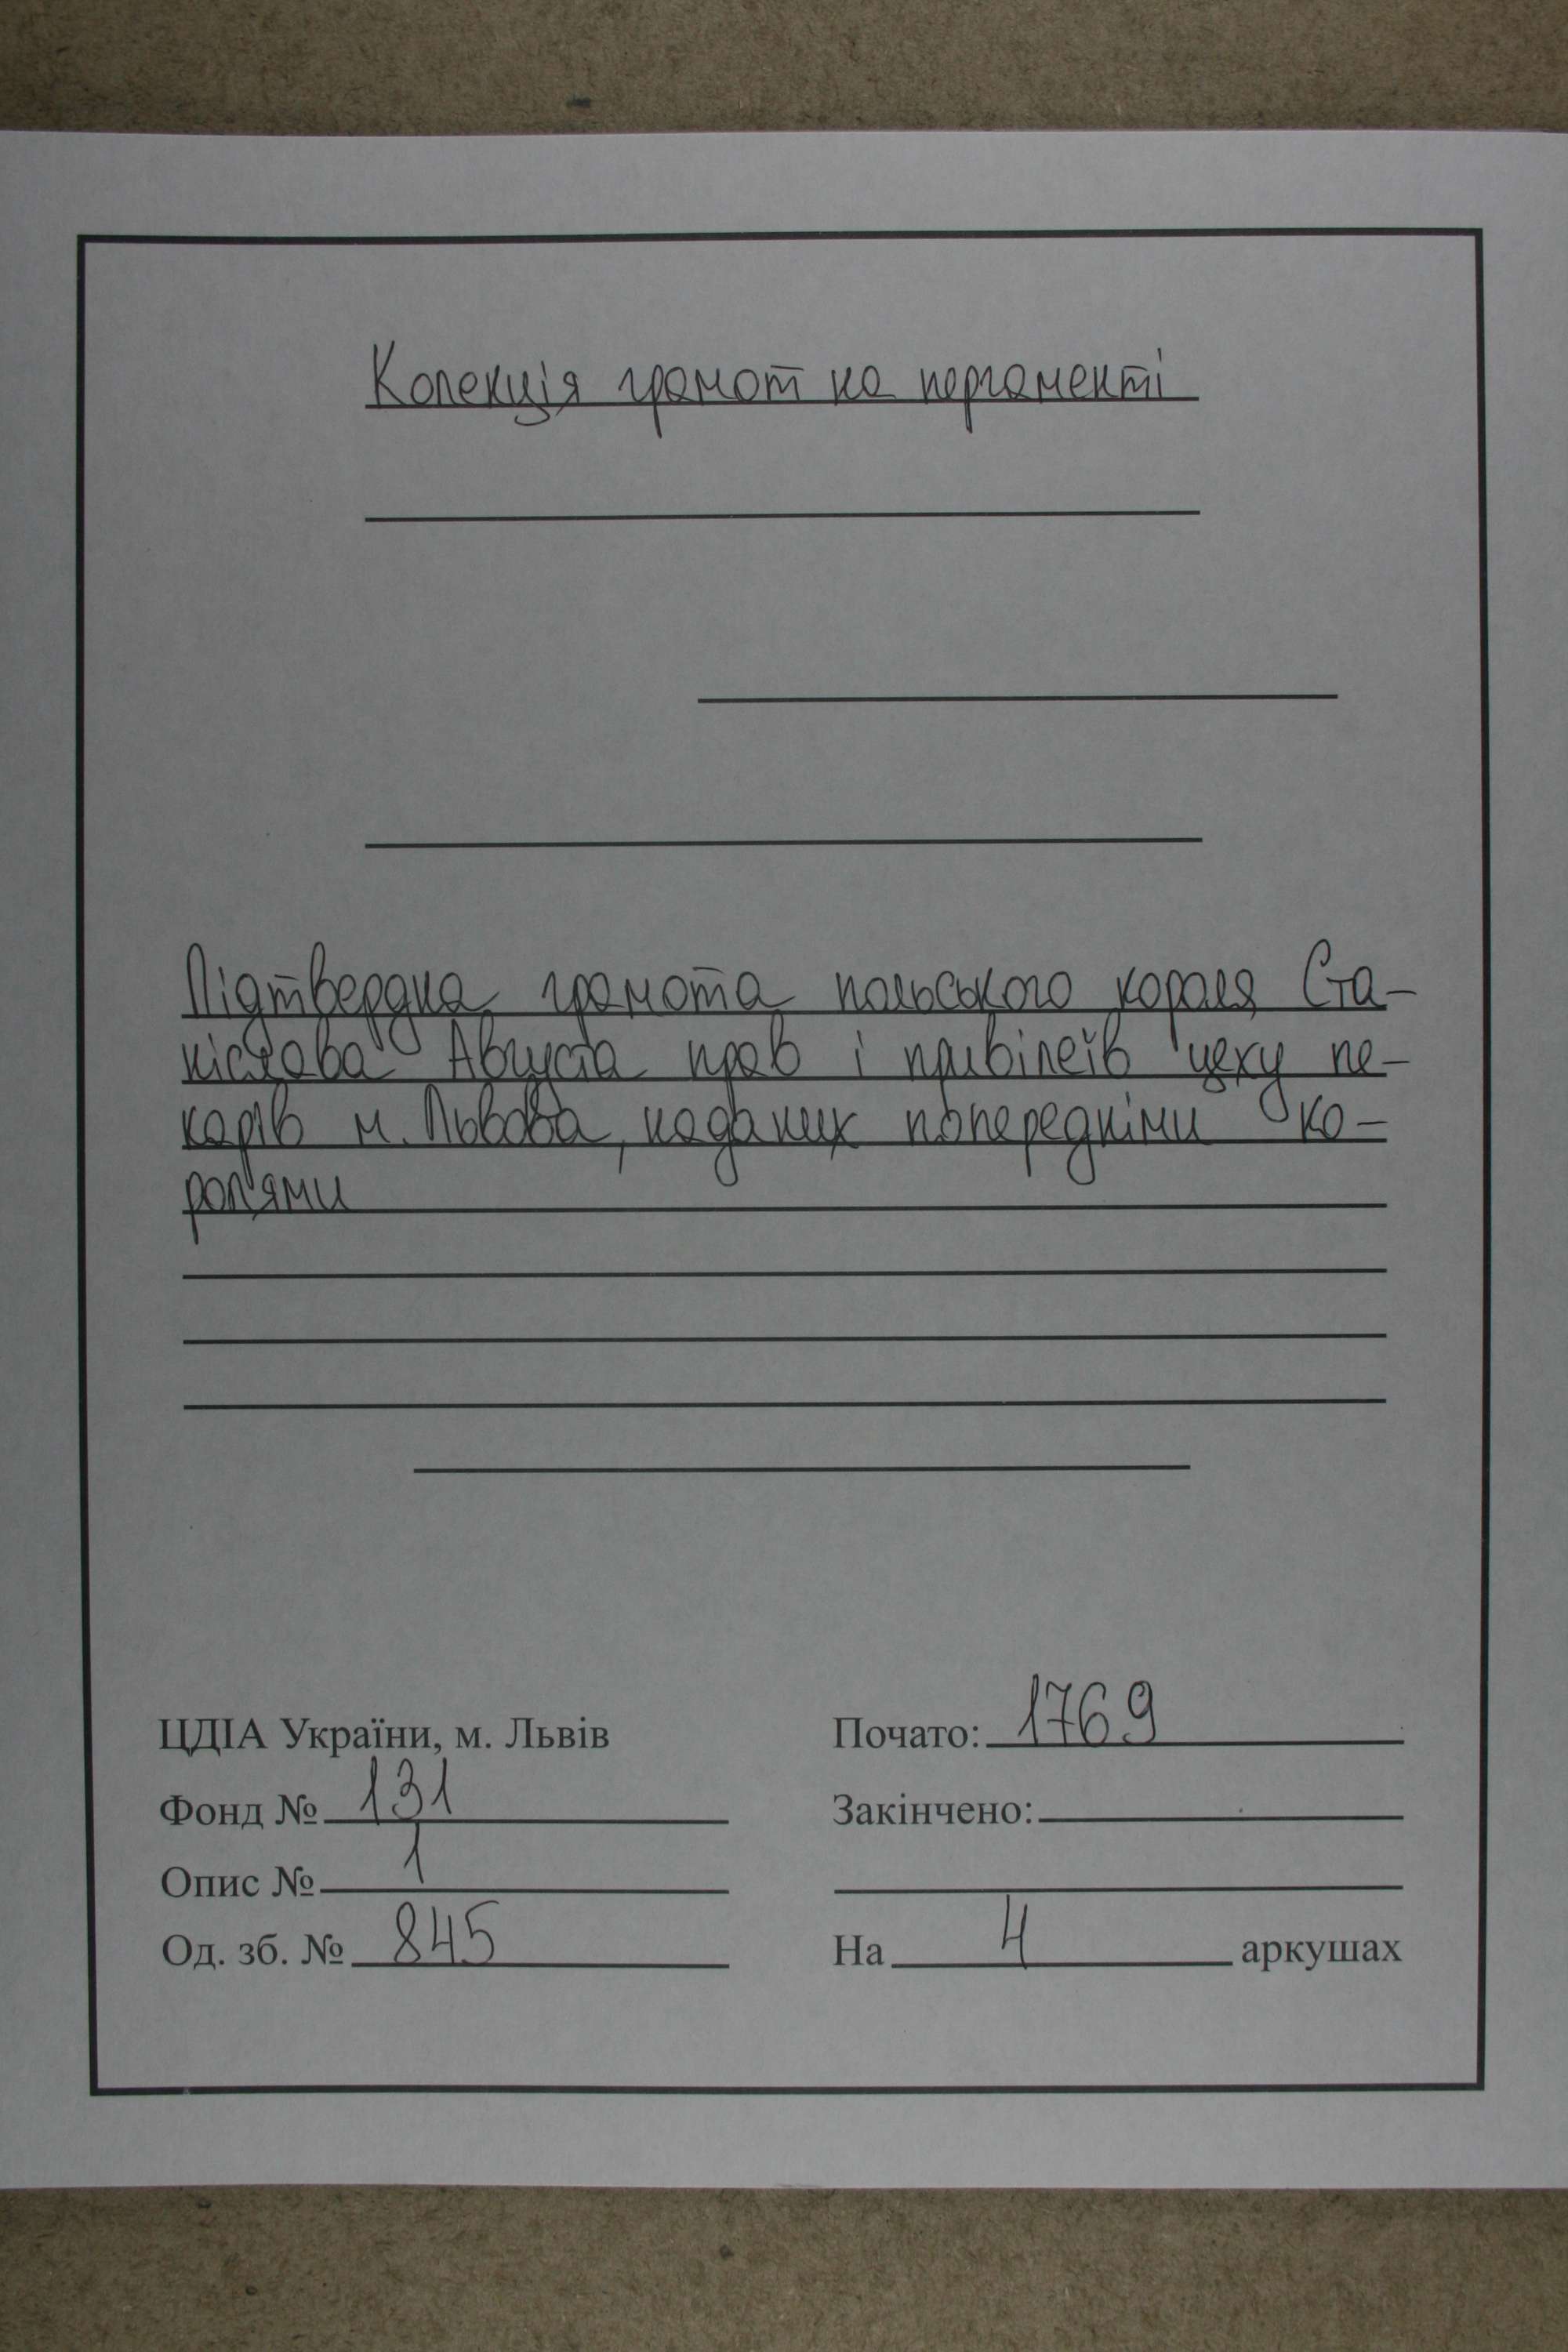 Колекція грамот на пергаменті
Підтвердна грамота польського короля Ста-
ніслава Августа прав і привілеїв цеху пе-
карів м. Львова, наданих попередніми ко-
ролями
ЦДІА України, м. Львів
Почато: 1769
Фонд № 131
Закінчено:
Опис № 1
Од. зб. № 845
На 4 аркушах